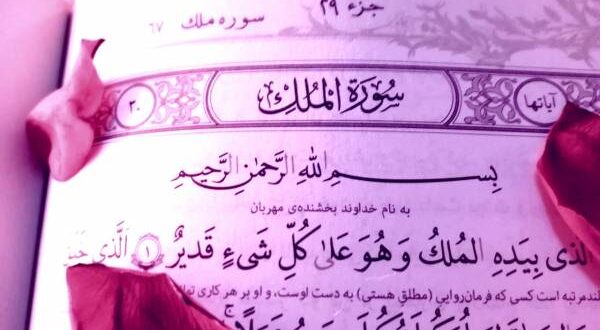 جزء ۲۹
سوره ملک ۶۷
آیاتها سُورَةُ المُلك ۳۰
بِسمِ اللهِ الرَّحمٰنِ الرَّحيمِ
به نام خداوند بخشنده‌ی مهربان
الَّذى بِيَدِهِ المُلكُ وَ هُوَ عَلىٰ كُلِّ شَىءٍ قَديرٌ ۱ الَّذى
است کسی که فرمان‌روایی (مطلق هستی) به دست اوست، و او بر هر کاری